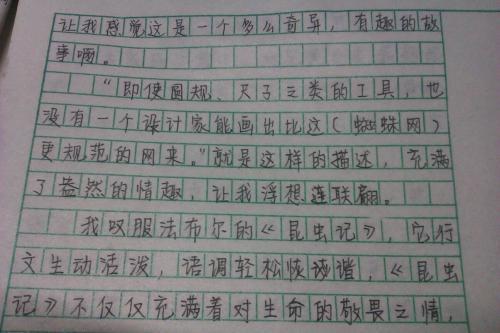 让我感觉这是一个多么奇异，有趣的故
事啊。
“即使圆规、尺子之类的工具，也
没有一个设计家能画出比这（蜘蛛网）
更规范的网来。”就是这样的描述，充满
了盎然的情趣，让我浮想连联翩。
我叹服法布尔的《昆虫记》，它行
文生动活泼，语调轻松恢诙谐，《昆虫
记》不仅仅充满着对生命的敬畏之情，